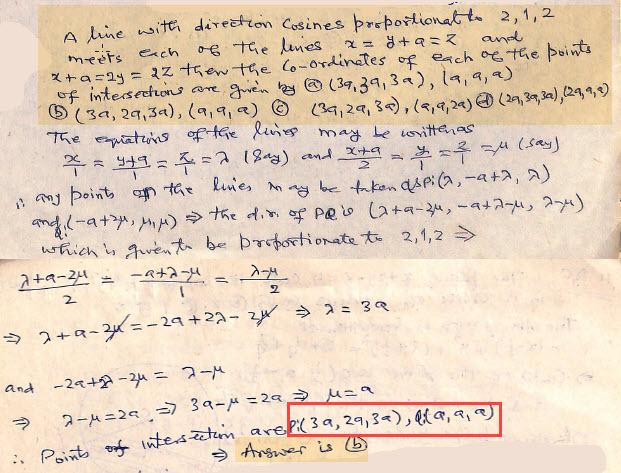 A line with direction Cosines proportional to 2, 1, 2
meets each of the lines x = y + a = z and
x + a = 2y = 2z then the Co-ordinates of each of the points
of intersections are given by ⓐ (3a, 3a, 3a), (a, a, a)
ⓑ (3a, 2a, 3a), (a, a, a) ⓒ (3a, 2a, 3a), (a, a, 2a) ⓓ (2a, 3a, 3a), (2a, a, a)
The equations of the lines may be written as
x/1 = y+a/1 = z/1 = λ (Say) and x+a/2 = y/1 = z/1 = μ (say)
∴ any points on the lines may be taken as P is (λ, -a+λ, λ)
and Q (-a+2μ, μ, μ) ⇒ the d.r. of PQ is (λ+a-2μ, -a+λ-μ, λ-μ)
which is given to be proportionate to 2, 1, 2 ⇒
λ+a-2μ/2 = -a+λ-μ/1 = λ-μ/2
⇒ λ+a-2μ = -2a+2λ-2μ ⇒ λ = 3a
and -2a+2λ-2μ = λ-μ
⇒ λ-μ = 2a ⇒ 3a-μ = 2a ⇒ μ = a
∴ Points of intersection are P is (3a, 2a, 3a), Q (a, a, a)
⇒ Answer is ⓑ